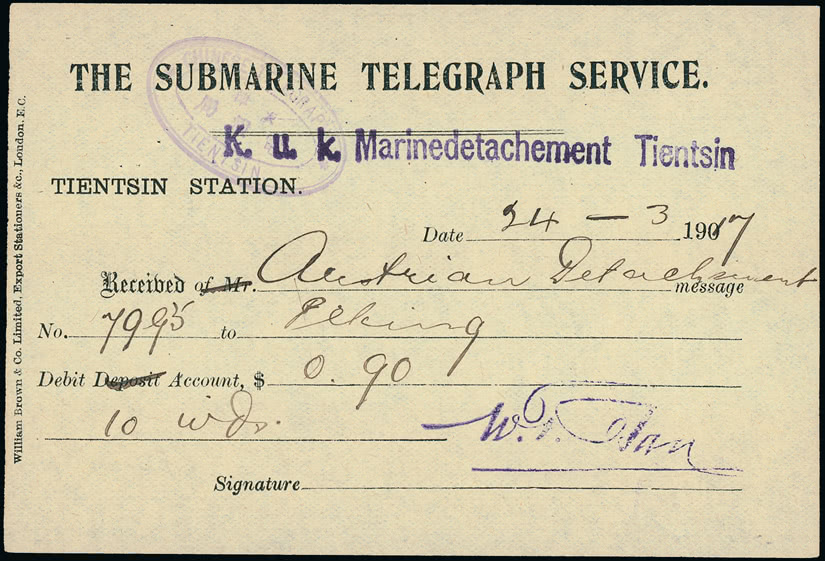 THE SUBMARINE TELEGRAPH SERVICE.
K. u. k. Marinedetachement Tientsin
TIENTSIN
TIENTSIN STATION.
Date 24 - 3 1907
Received of Mr. Austrian Detachment message
No. 7995 to Peking
Debit Deposit Account, $ 0.90
10 wds.
W.
Signature
William Brown & Co. Limited, Export Stationers &c., London. E.C.